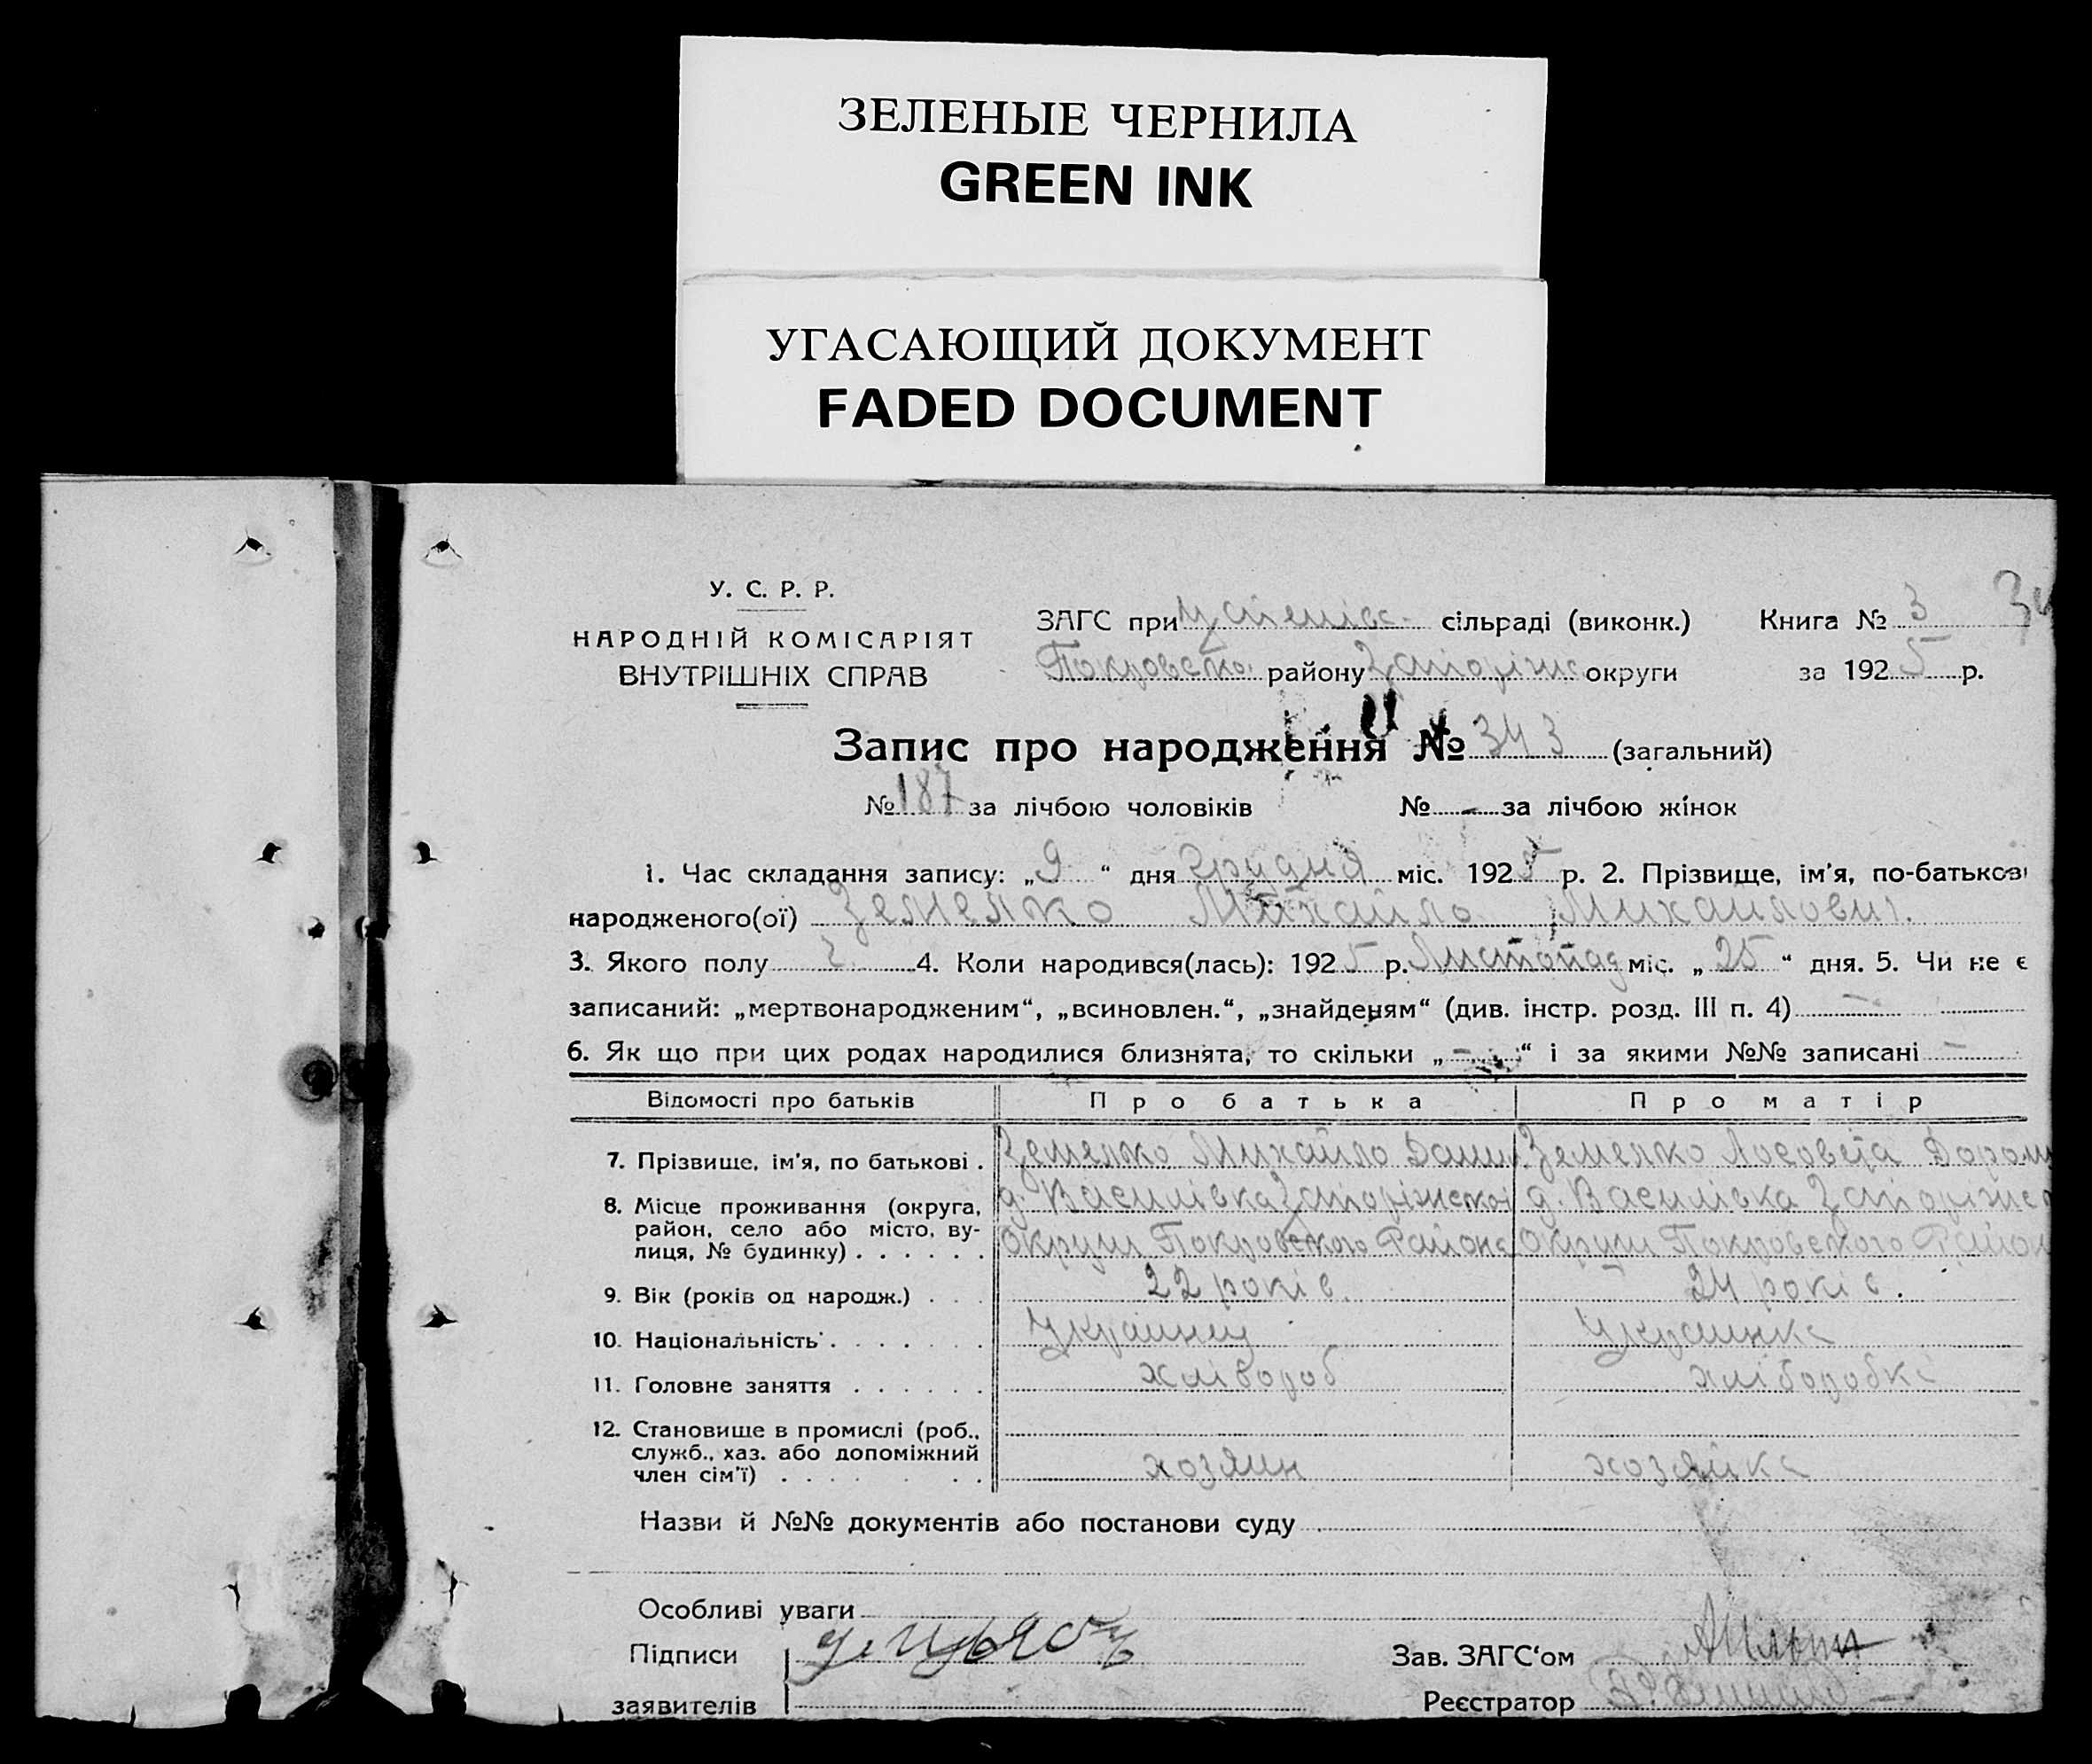 ЗЕЛЕНЫЕ ЧЕРНИЛА
GREEN INK
УГАСАЮЩИЙ ДОКУМЕНТ
FADED DOCUMENT
У. С. Р. Р.
НАРОДНІЙ КОМІСАРІЯТ
ВНУТРІШНІХ СПРАВ
ЗАГС при сільраді (виконк.) Книга № 3
Покровсько району Запоріжс округи за 1925 р.
Запис про народження № 343 (загальний)
№ 187 за лічбою чоловіків № - за лічбою жінок
1. Час складання запису: „9“ дня Грудня міс. 1925 р. 2. Прізвище, ім'я, по-батькові
народженого(ої) Земелко Михайло Михайлович.
3. Якого полу ч. 4. Коли народився(лась): 1925 р. Листопад міс. „25“ дня. 5. Чи не є
записаний: „мертвонародженим“, „всиновлен.“, „знайденям“ (див. інстр. розд. III п. 4) -
6. Як що при цих родах народилися близнята, то скільки „-“ і за якими №№ записані -
Відомості про батьків Про батька Про матір
7. Прізвище, ім'я, по батькові . Земелко Михайло Земелко
8. Місце проживання (округа, д. Василівка Запоріжської д. Василівка Запоріжс
район, село або місто, ву-
лиця, № будинку) . . . . . . Округи Покровского Района Округи Покровского Район
9. Вік (років од народж.) . . . 22 років. 24 років.
10. Національність . . . . . . . Украинец Украинка
11. Головне заняття . . . . . . хлібороб хліборобка
12. Становище в промислі (роб.,
служб., хаз. або допоміжний
член сім'ї) . . . . . . хозяин хозяйка
Назви й №№ документів або постанови суду
Особливі уваги
Підписи Зав. ЗАГС'ом
заявителів Реєстратор